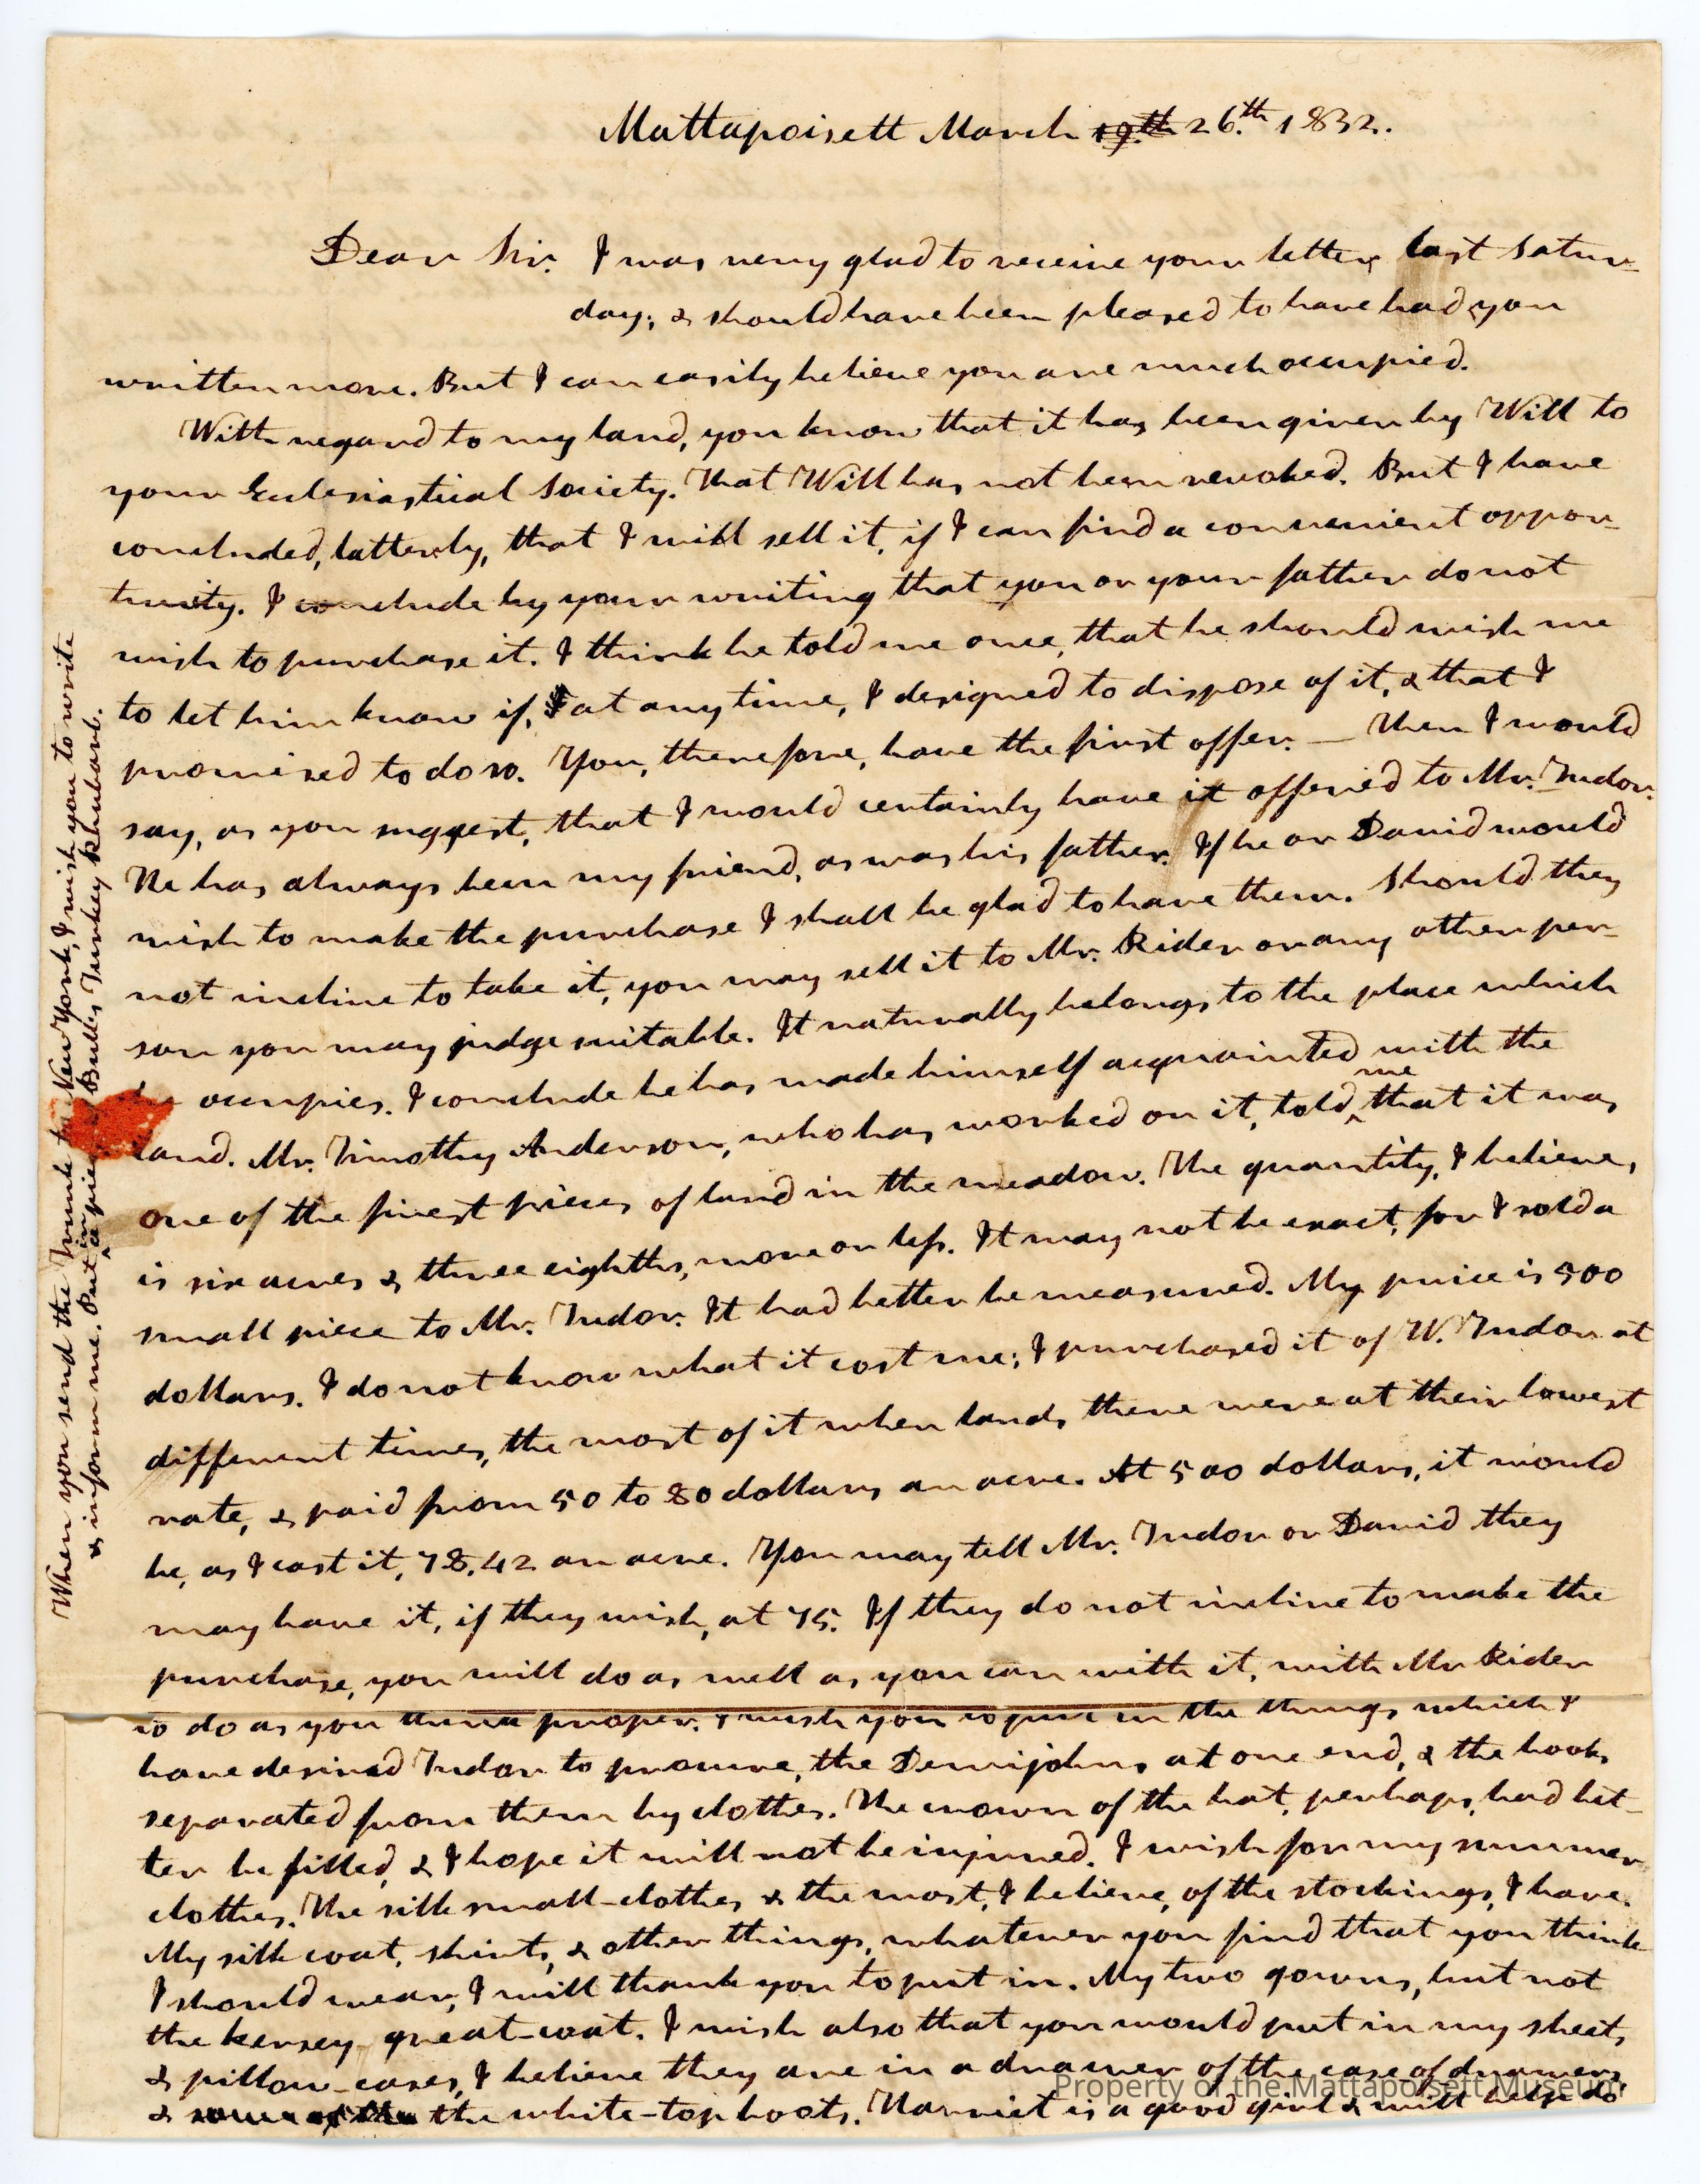 Mattapoisett March 19th 26.th 1832.
Dear Sir. I was very glad to receive your letter, last Satur-
day; & should have been pleased to have had you
written more. But I can easily believe you are much occupied.
With regard to my land, you know that it has been given by Will to
your Eclesiastical Society. That Will has not been revoked. But I have
concluded, latterly, that I will sell it, if I can find a convenient oppor-
tunity. I conclude by your writing that you or your father do not
wish to purchase it. I think he told me once, that he should wish me
to let him know if, at any time, I designed to dispose of it, & that I
promised to do so. You, therefore, have the first offer. — Then I would
say, as you suggest, that I would certainly have it offered to Mr. Tudor.
He has always been my friend, as was his father. If he or David would
wish to make the purchase I shall be glad to have them. Should they
not incline to take it, you may sell it to Mr. Rider or any other per-
son you may judge suitable. It naturally belongs to the place which
occupies. I conclude he has made himself acquainted with the
land. Mr. Timothy Anderson, who has worked on it, told me that it was
one of the finest pieces of land in the meadow. The quantity, I believe,
is six acres & three eighths, more or less. It may not be exact, for I sold a
small piece to Mr. Tudor. It had better be measured. My price is 500
dollars. I do not know what it cost me; I purchased it of W. Tudor at
different times, the most of it when lands there were at their lowest
rate, & paid from 50 to 80 dollars an acre. At 500 dollars, it would
be, as I cast it, 78.42 an acre. You may tell Mr. Tudor or David they
may have it, if they wish, at 75. If they do not incline to make the
purchase, you will do as well as you can with it, with Mr Rider
to do as you think proper. I wish you to put in the things which I
have desired Tudor to procure, the Demijohns at one end, & the books
separated from them by clothes. The crown of the hat, perhaps, had bet-
ter be filled, & I hope it will not be injured. I wish for my summer
clothes. The silk small-clothes & the most, I believe, of the stockings, I have.
My silk coat, shirts, & other things, whatever you find that you think
I should wear, I will thank you to put in. My two gowns, but not
the kersey great-coat. I wish also that you would put in my sheets
& pillow-cases, I believe they are in a drawer of the case of drawers
& some of the the white-top boots. Harriet is a good girl & will help do
When you send the Trunk to New York, I wish you to write
& inform me. Put in a piece Bulles Turkey Rhubarb.
Property of the Mattapoisett Museum